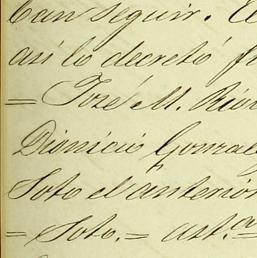 ban seguir.
así lo decretó
= José M.
Dionicio Gonzal
Soto el anterior
= Soto. = ast.a